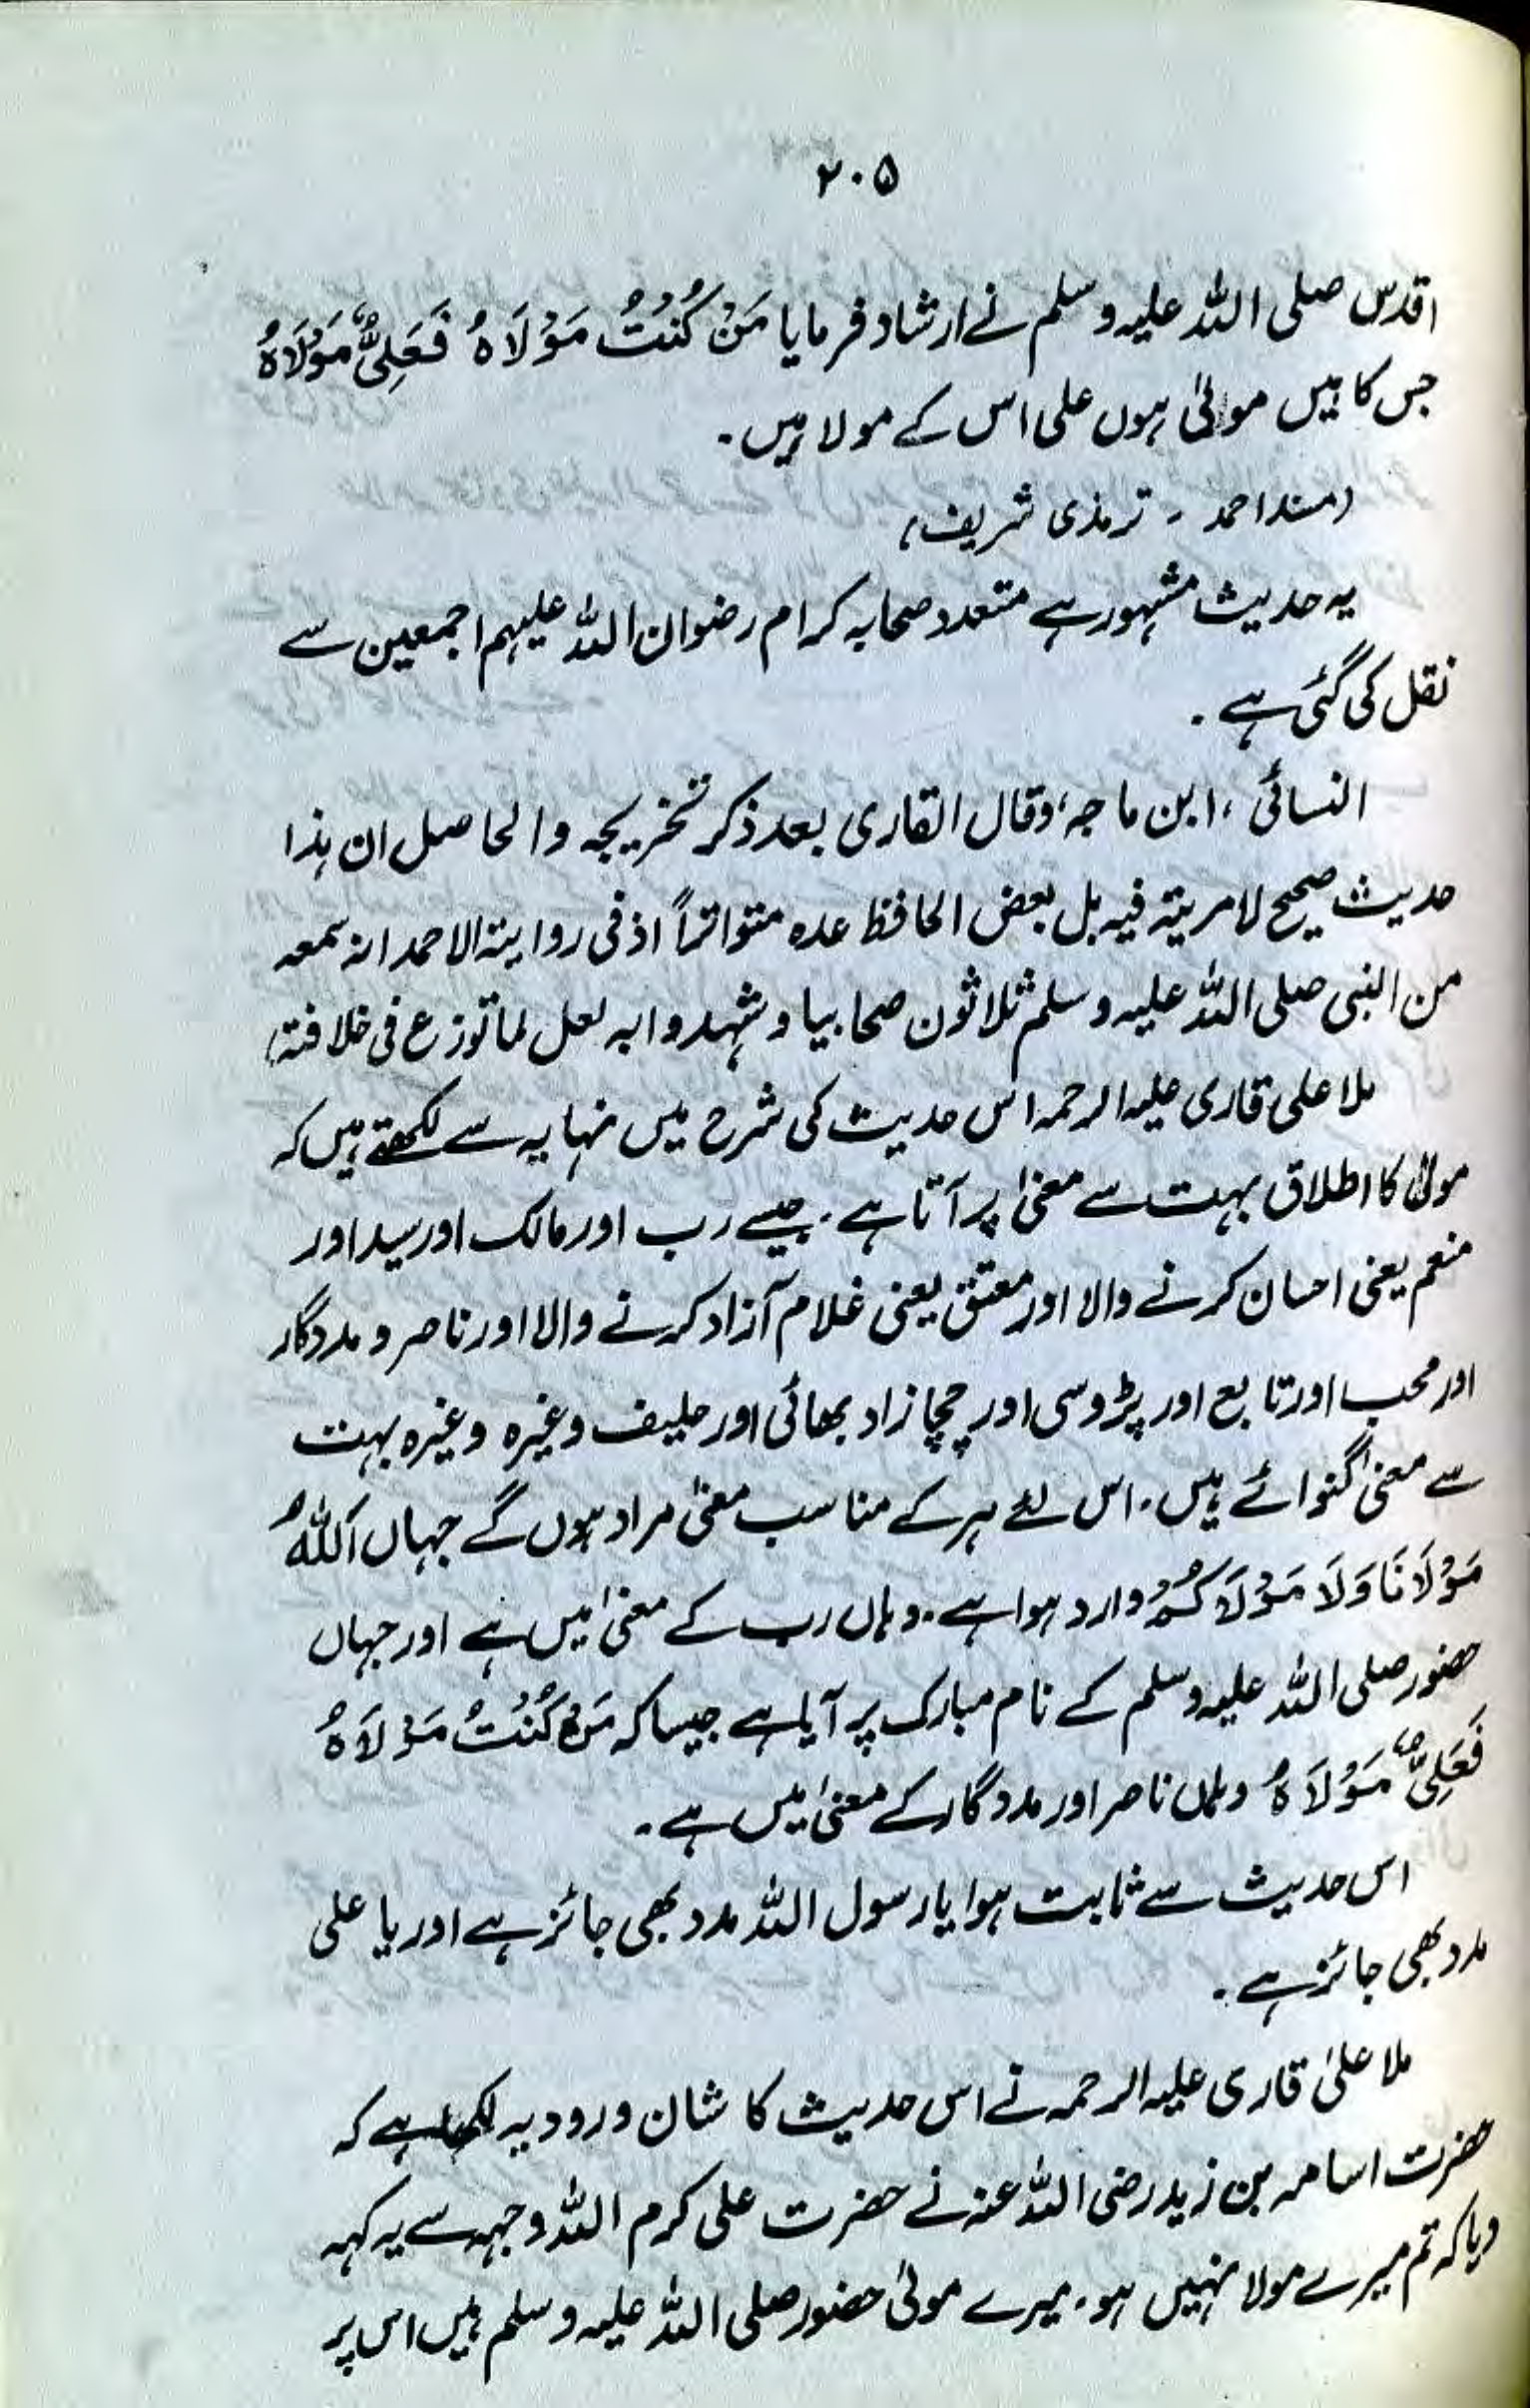 ۲۰۵
اقدس صلی اللہ علیہ وسلم نے ارشاد فرمایا مَنْ كُنْتُ مَوْلَاهُ فَعَلِیٌّ مَوْلَاهُ
جس کا میں مولیٰ ہوں علی اس کے مولا ہیں۔
(مسند احمد ۔ ترمذی شریف)
یہ حدیث مشہور ہے متعدد صحابہ کرام رضوان اللہ علیہم اجمعین سے
نقل کی گئی ہے ۔
النسائی ، ابن ماجہ، وقال القاری بعد ذکر تخریجہ والحاصل ان ہذا
حدیث صحیح لا مریتہ فیہ بل بعض الحافظ عدہ متواتراً اذ فی روایتہ الاحمد انہ سمعہ
من النبی صلی اللہ علیہ وسلم ثلاثون صحابیا وشہدوا بہ لعل لما توزع فی خلافتہ)
ملا علی قاری علیہ الرحمہ اس حدیث کی شرح میں نہایہ سے لکھتے ہیں کہ
مولیٰ کا اطلاق بہت سے معنیٰ پر آتا ہے ۔ جیسے رب اور مالک اور سید اور
منعم یعنی احسان کرنے والا اور معتق یعنی غلام آزاد کرنے والا اور ناصر و مددگار
اور محب اور تابع اور پڑوسی اور چچا زاد بھائی اور حلیف وغیرہ وغیرہ بہت
سے معنیٰ گنوائے ہیں ۔ اس لئے ہر کے مناسب معنیٰ مراد ہوں گے جہاں اَللّٰهُ
مَوْلَانَا وَلَا مَوْلَا كُمُ وارد ہوا ہے ۔ وہاں رب کے معنیٰ میں ہے اور جہاں
حضور صلی اللہ علیہ وسلم کے نام مبارک پر آیا ہے جیسا کہ مَنْ كُنْتُ مَوْلَاهُ
فَعَلِیٌّ مَوْلَاهُ وہاں ناصر اور مددگار کے معنیٰ میں ہے ۔
اس حدیث سے ثابت ہوا یا رسول اللہ مدد بھی جائز ہے اور یا علی
مدد بھی جائز ہے ۔
ملا علیٰ قاری علیہ الرحمہ نے اس حدیث کا شان ورود یہ لکھا ہے کہ
حضرت اسامہ بن زید رضی اللہ عنہ نے حضرت علی کرم اللہ وجہہ سے یہ کہہ
دیا کہ تم میرے مولا نہیں ہو ۔ میرے مولیٰ حضور صلی اللہ علیہ وسلم ہیں اس پر